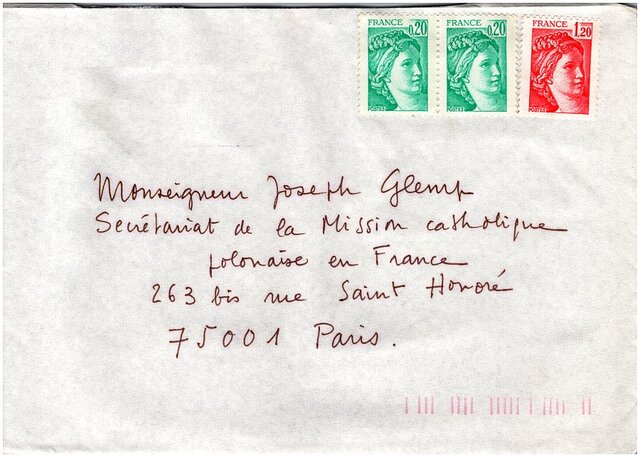 FRANCE 0,20
FRANCE 0,20
FRANCE 1,20
Monseigneur Joseph Glemp
Secrétariat de la Mission catholique
polonaise en France
263 bis rue Saint Honoré
75001 Paris.